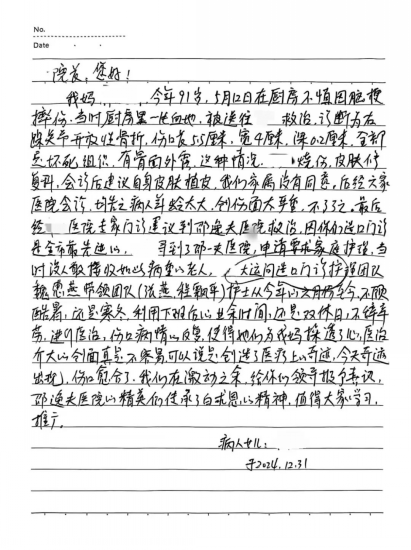 No.
Date
院长，您好！
我妈 今年91岁，5月12日在厨房不慎因脑梗
摔伤，当时厨房里一片血地，被送往 救治，诊断为左
踝关节开放性骨折，伤口长5.5厘米，宽4厘米，深0.2厘米，全部
是坏死组织，有骨面外露，这种情况 烧伤，皮肤修
复科，会诊后建议自身皮肤植皮，我们亲属没有同意，后经六家
医院会诊，均告之病人年龄太大，创伤面太严重，不了了之。最后
经 医院专家门诊建议到邵逸夫医院救治，因你们造口门诊
是全市最先进的， 寻到邵逸夫医院，申请要求家庭护理，当
时没人敢接收如此病重的老人，大运河造口门诊护理团队
魏惠燕带领团队（张燕、程颖年）护士从今年6月份至今，不顾
酷暑，还是寒冬，利用下班后业余时间，还是双休日，不辞辛
劳，进行医治，伤口病情的反复，使得她们为我妈操透了心，医治
介大的创面真是不容易，可以说是创造了医疗上的奇迹，今天奇迹
出现，伤口愈合了。我们在激动之余，给你们领导报个喜讯，
邵逸夫医院的精英们传承了白求恩的精神，值得大家学习，
推广。
病人女儿：
于2024.12.31